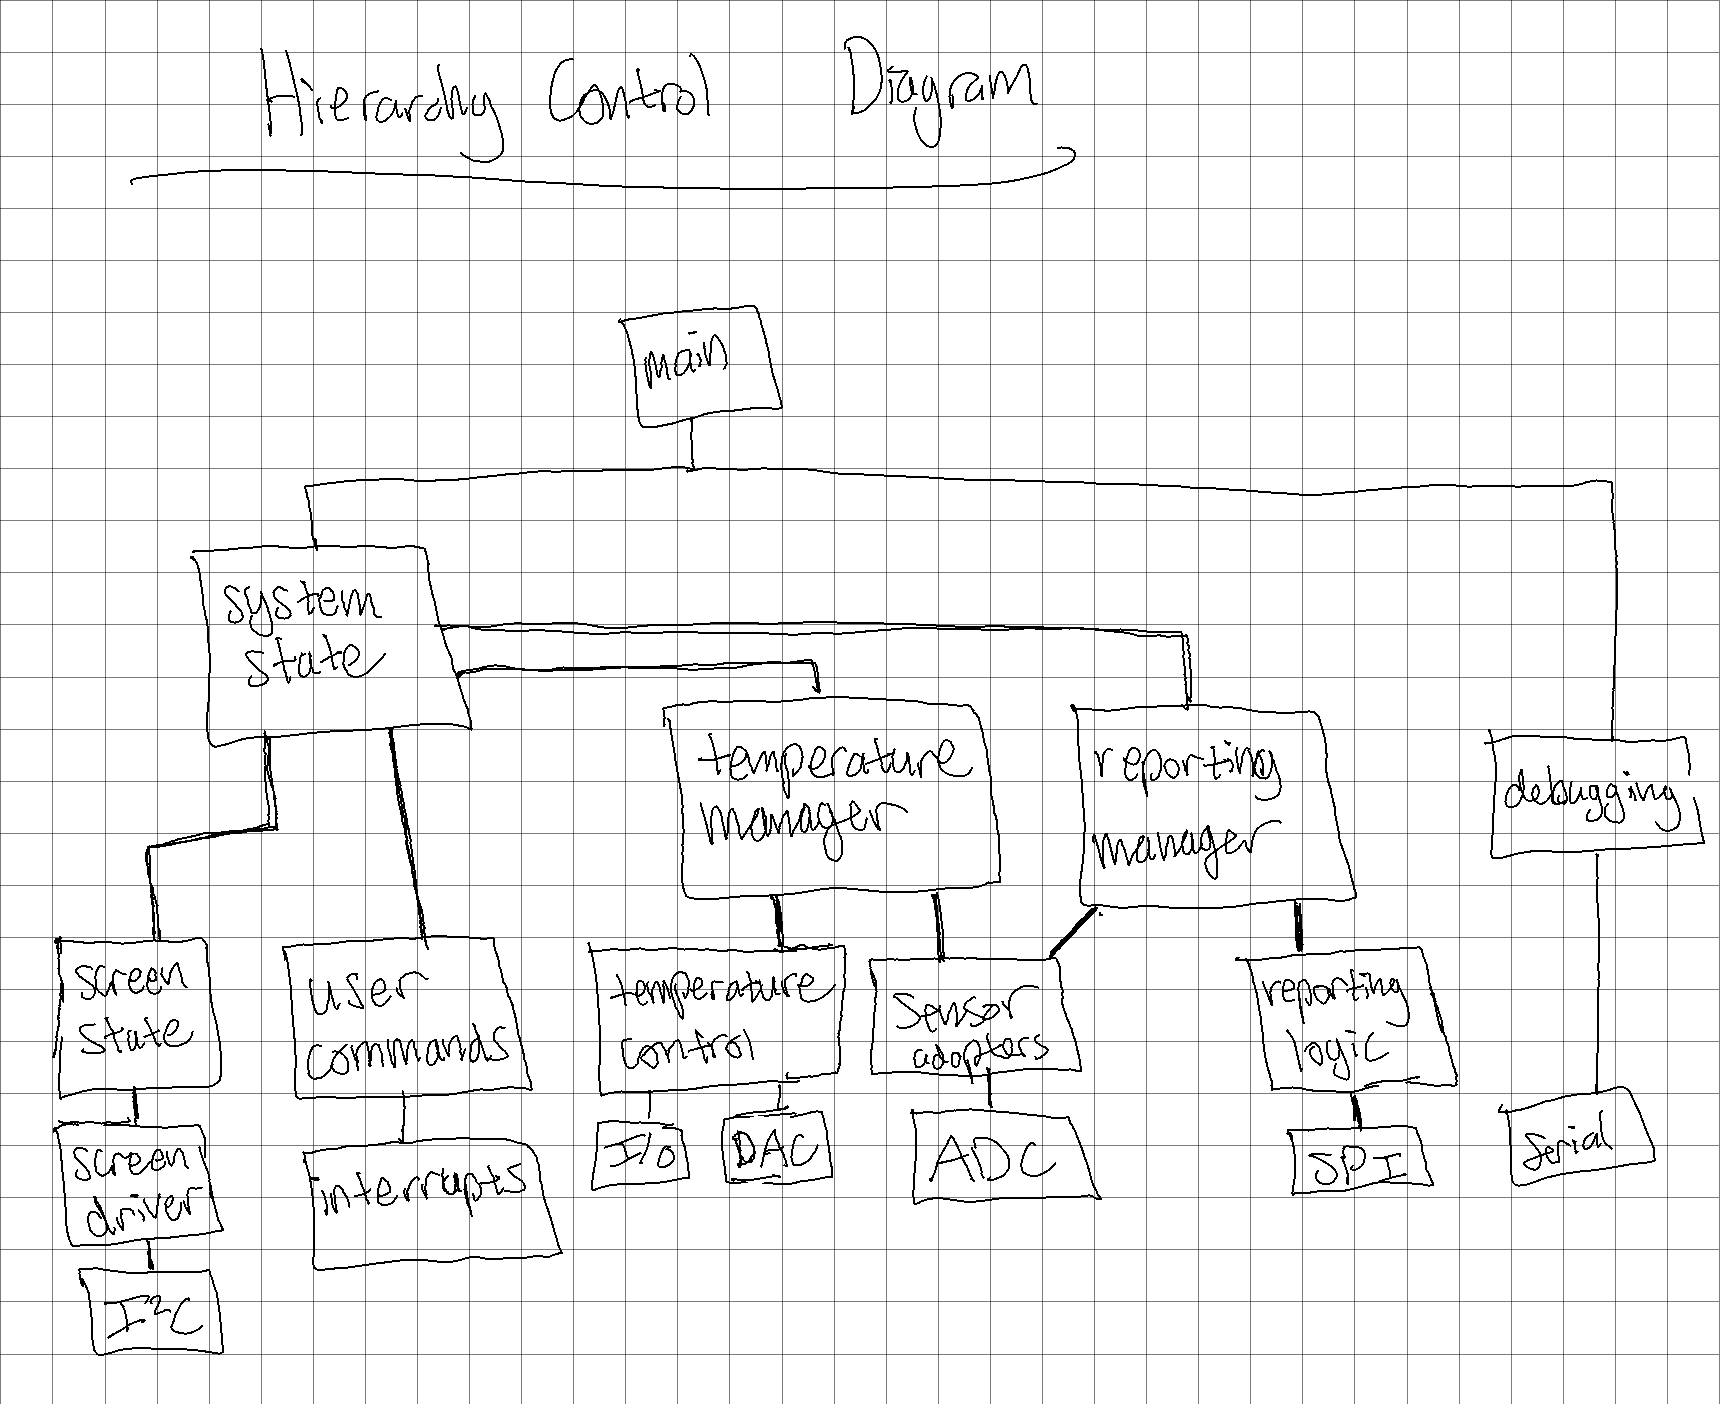 Hierarchy Control Diagram
main
system
state
temperature
manager
reporting
manager
debugging
screen
state
user
commands
temperature
control
sensor
adapters
reporting
logic
screen
driver
interrupts
I/O
DAC
ADC
SPI
Serial
I²C